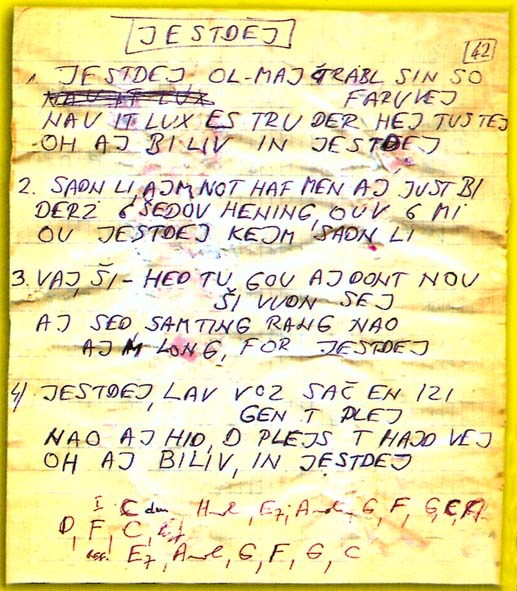 JESTDEJ
42
1. JESTDEJ OL-MAJ TRABL SIN SO
FARUVEJ
NAU IT LUX ES TRU DER HEJ TUSTEJ
OH AJ BILIV IN JESTDEJ
2. SADN LI, AJM NOT HAF MEN AJ JUST BI
DERZ 6 ŠEDOV HENING, OUV 6 MI
OU JESTDEJ KEJM SADN LI
3. VAJ, ŠI - HED TU, GOU AJ DONT NOU
ŠI VUDN SEJ
AJ SED, SAMTING RANG NAO
AJ M LONG, FOR JESTDEJ
4) JESTDEJ, LAV VOZ SAČ EN IZI
GEN T PLEJ
NAO AJ HID, D PLEJS T HAJD VEJ
OH AJ BILIV, IN JESTDEJ
I C H , E7, A , G, F, G, C,
D, F, C,
E7, A , G, F, G, C